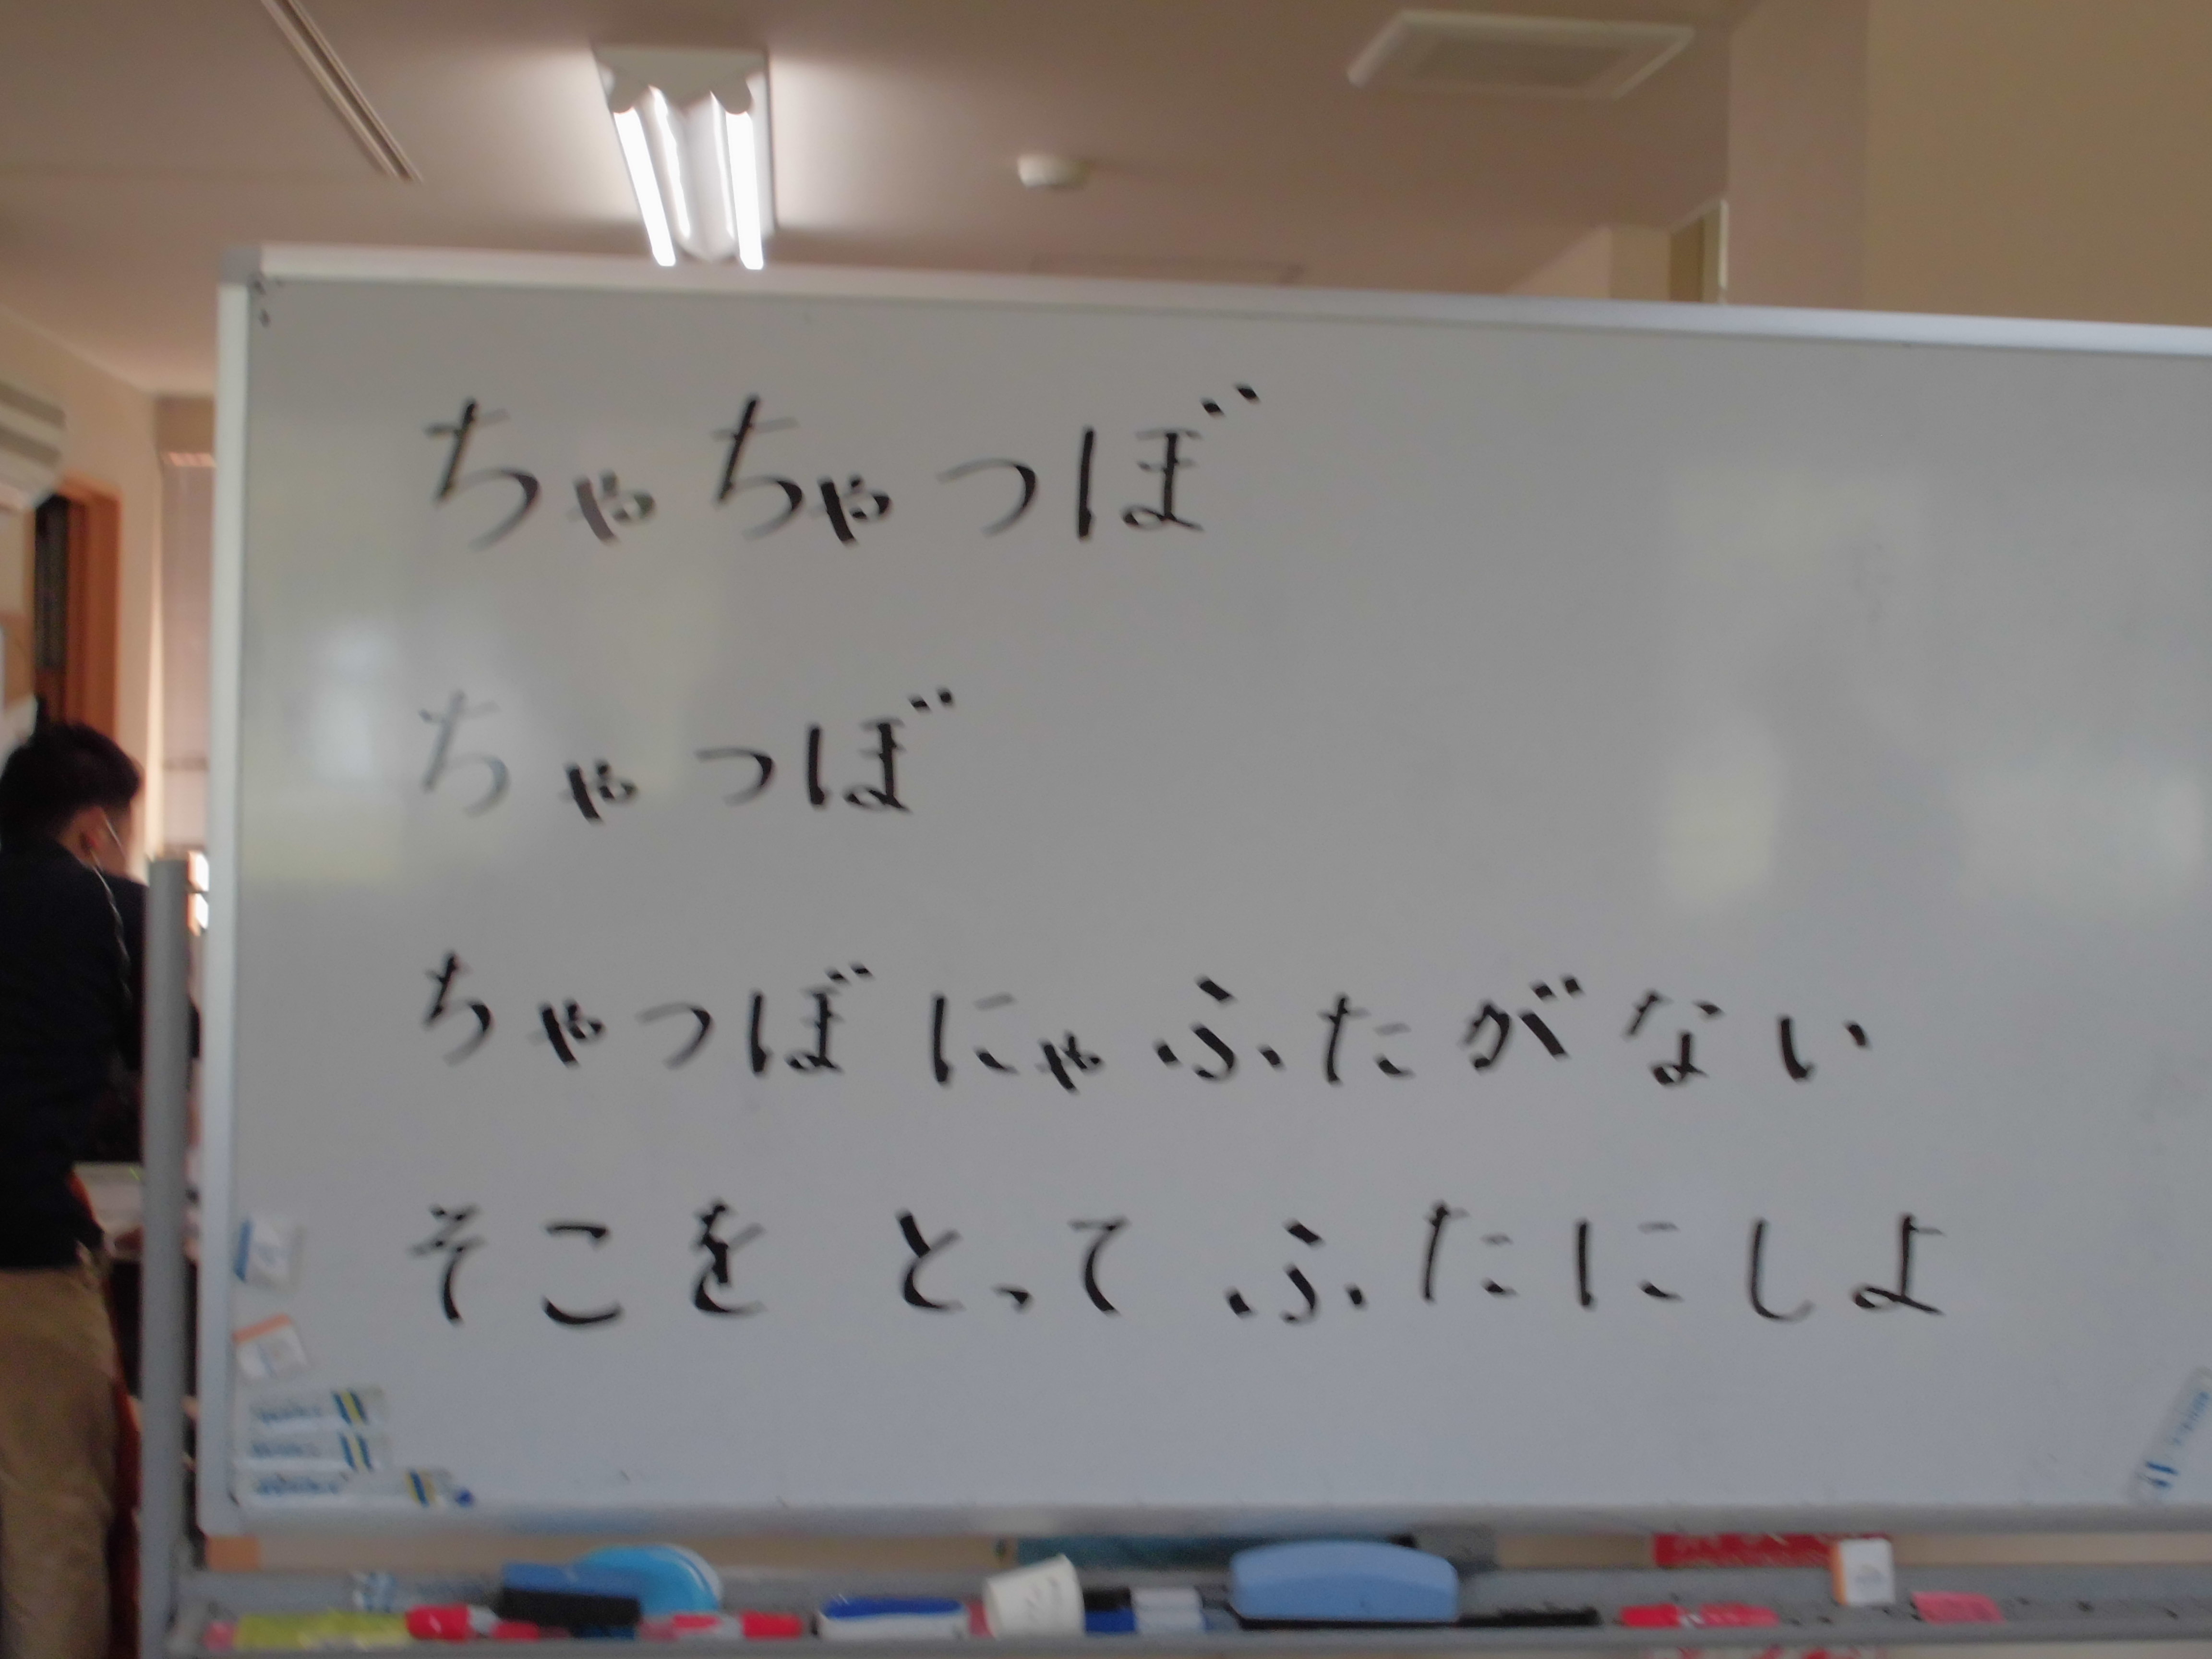 ちゃちゃつぼ
ちゃつぼ
ちゃつぼにゃふたがない
そこを とって ふたにしよ